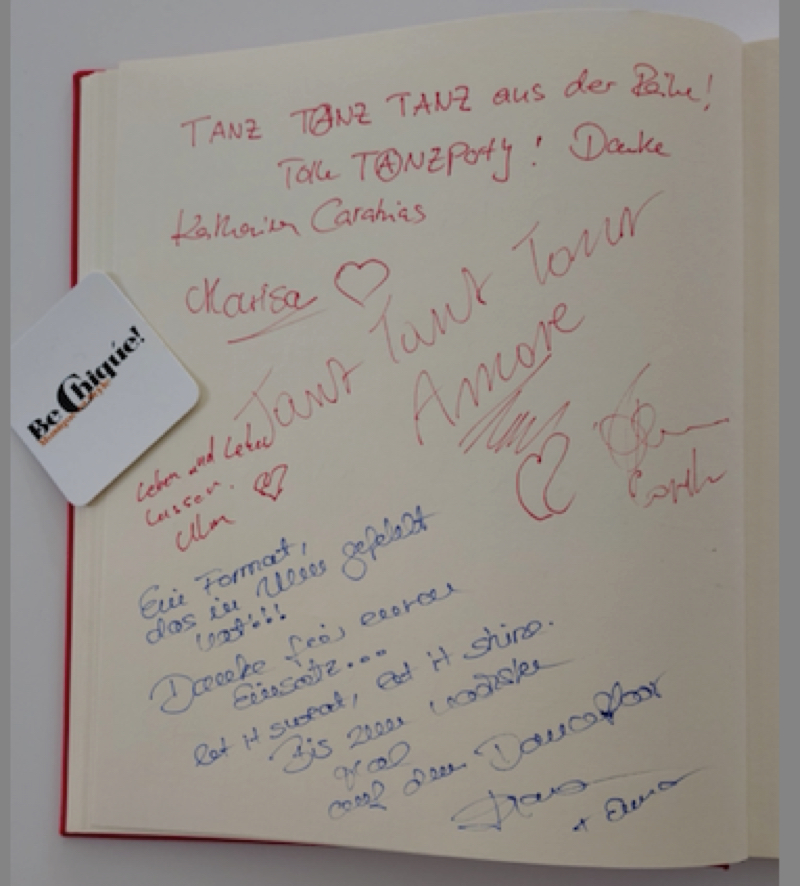 TANZ TANZ TANZ aus der Reihe!
Tolle TANZParty! Danke
Katharina Carathias
Marisa
Tanz Tanz Tanz
Amore
Be Chique!
Leben und Leben
lassen.
Ulm
Ein Format,
das in Ulm gefehlt
hat!!!
Danke für euren
Einsatz...
let it sweat, let it shine.
Bis zum nächsten
Mal
auf dem Dancefloor